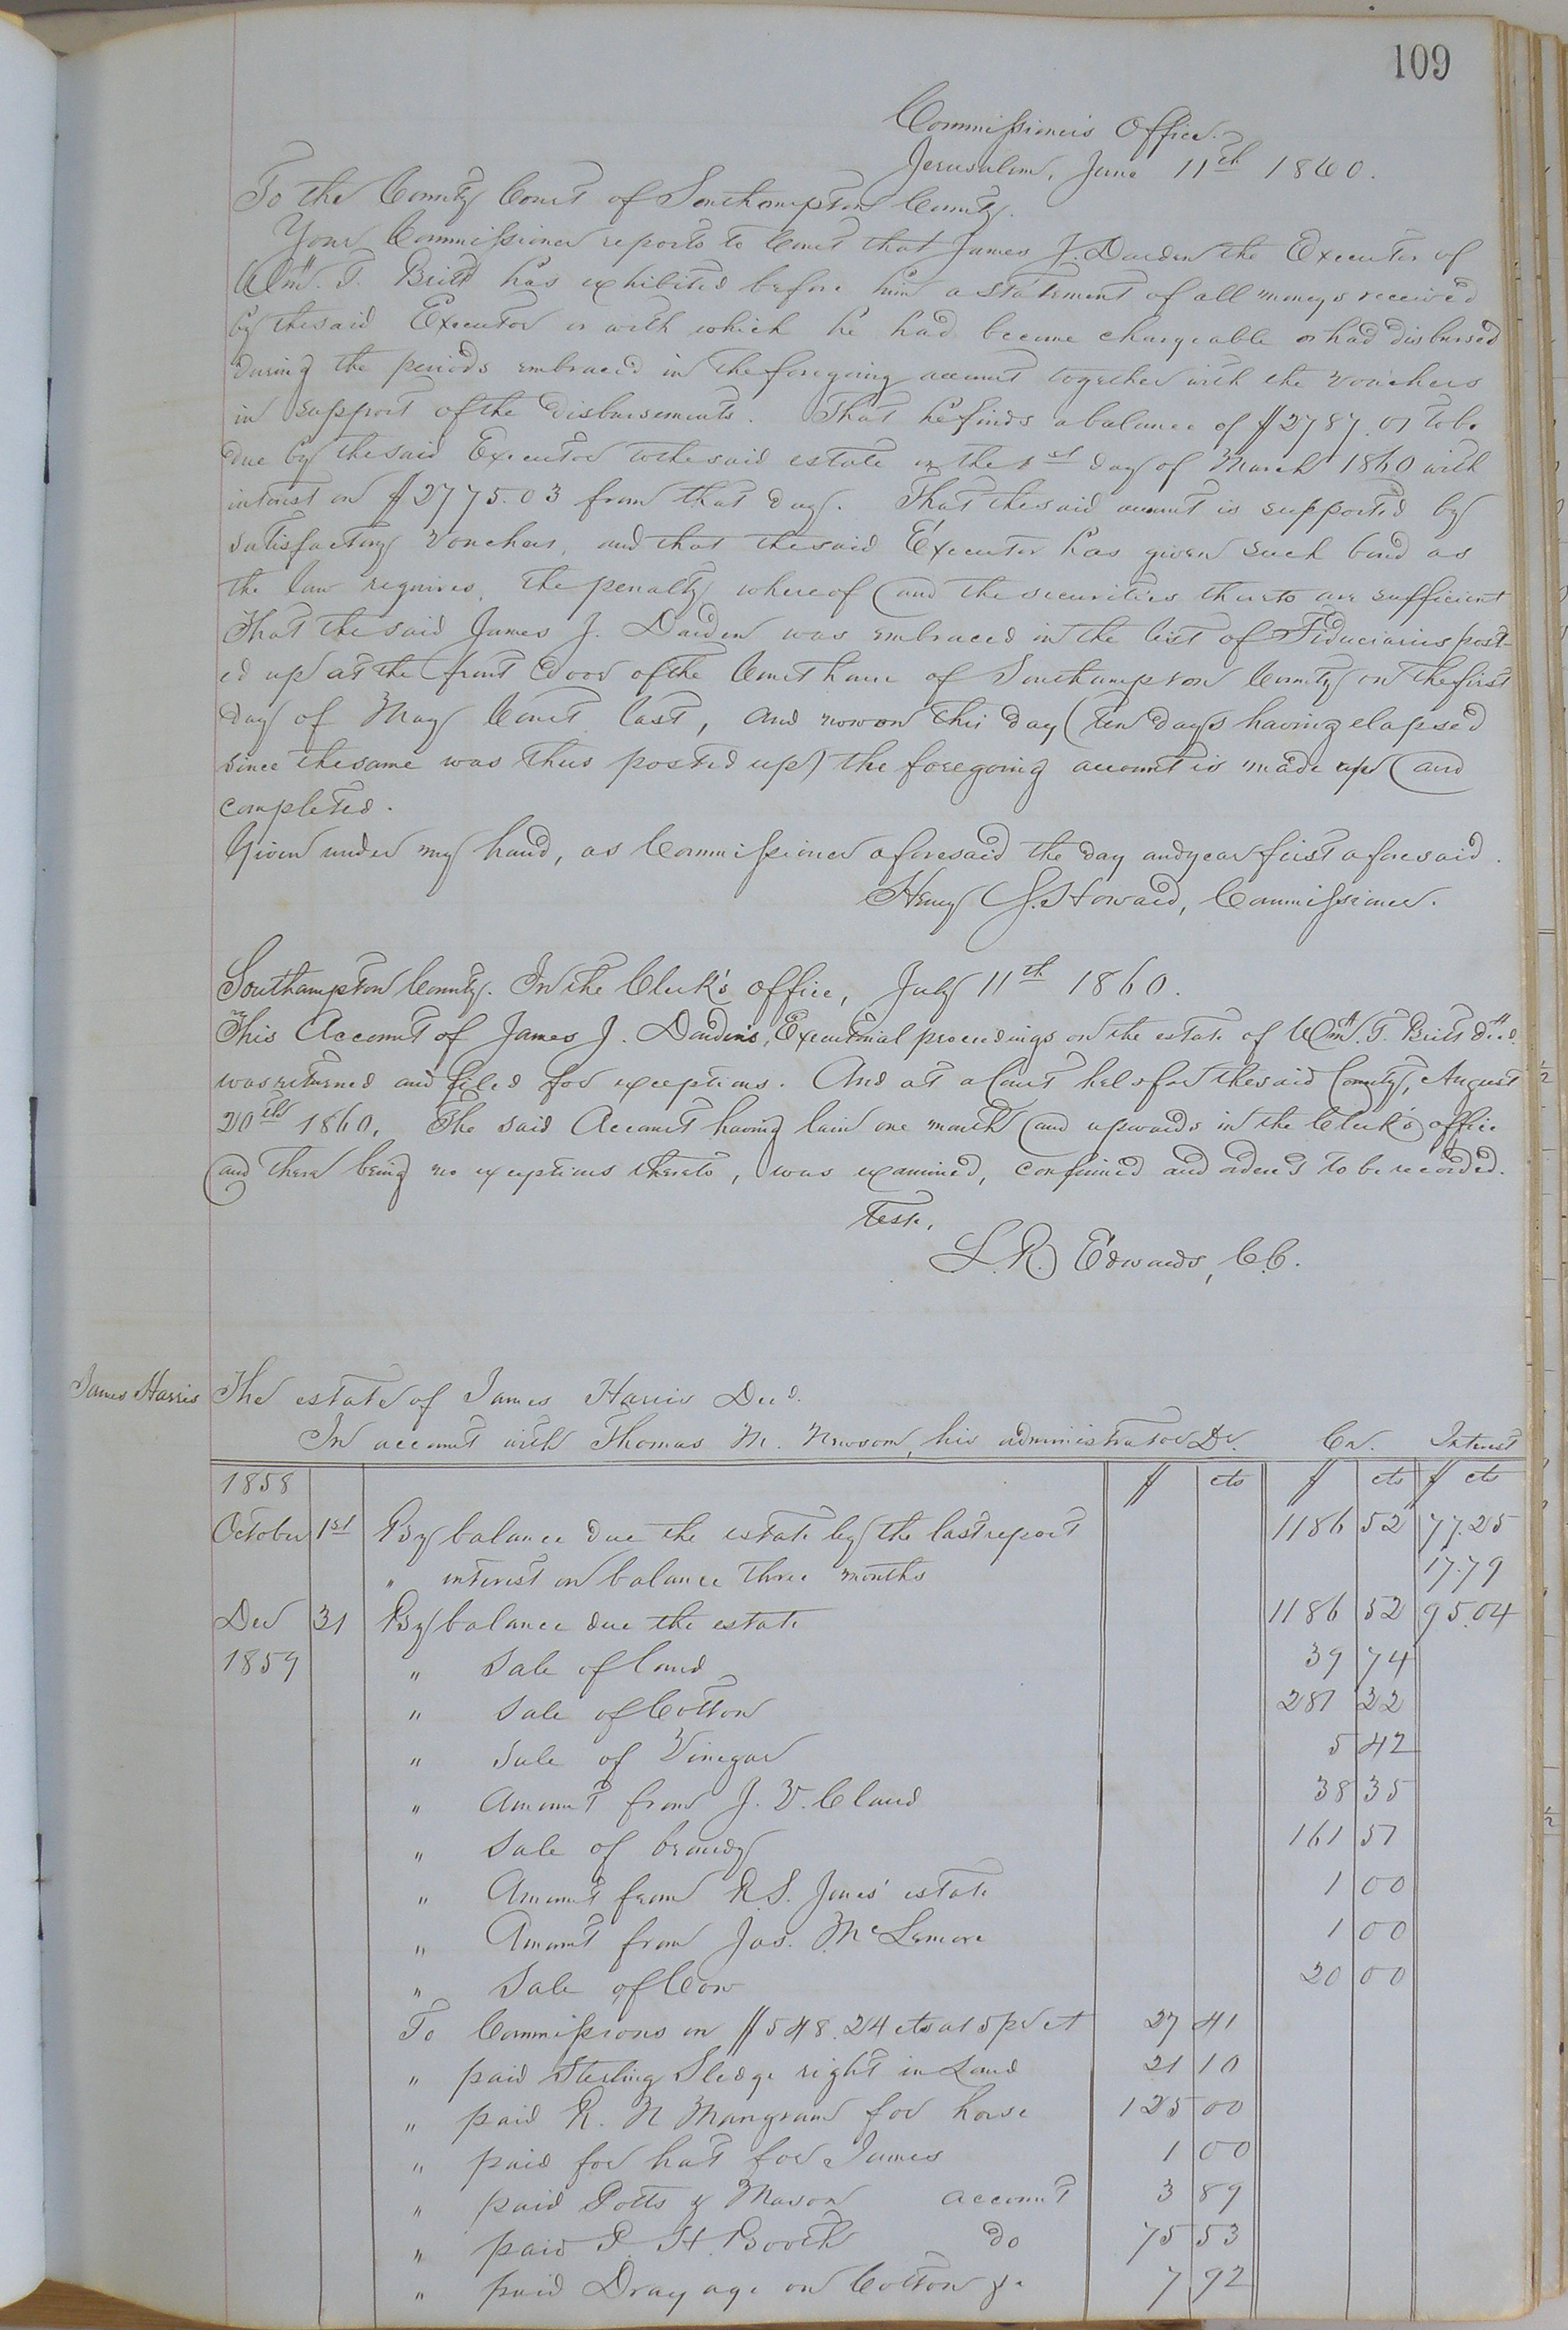 109
Commissioner's Office.
Jerusalem, June 11th 1860.
To the County Court of Southampton County.
Your Commissioner reports to Court that James J. Darden the Executor of
Wm. T. Britt has exhibited before him a statement of all moneys received
by the said Executor or with which he had become chargeable or had disbursed
during the periods embraced in the foregoing account together with the vouchers
in support of the disbursements. That he finds a balance of $2787.01 to be
due by the said Executor to the said estate on the 1st day of March 1860 with
interest on $2775.03 from that day. That the said account is supported by
satisfactory vouchers, and that the said Executor has given such bond as
the law requires, the penalty whereof and the securities thereto are sufficient
That the said James J. Darden was embraced in the list of Fiduciaries post-
ed up at the front door of the Court house of Southampton County on the first
day of May Court last, and now on this day (ten days having elapsed
since the same was thus posted up) the foregoing account is made up and
completed.
Given under my hand, as Commissioner aforesaid the day and year first aforesaid.
Henry S. Howard, Commissioner.
Southampton County. In the Clerk's office, July 11th 1860.
This Account of James J. Darden's, Executorial proceedings on the estate of Wm. T. Britt decd.
was returned and filed for exceptions. And at a Court held for the said County, August
20th 1860, The said Account having lain one month and upwards in the Clerk's office
and there being no exceptions thereto, was examined, confirmed and orderd to be recorded.
Teste,
L. R. Edwards, C.C.
James Harris
The estate of James Harris Decd.
In account with Thomas M. Newsom, his administrator Dr. Cr. Interest
1858 $ cts $ cts $ cts
October 1st By balance due the estate by the last report 1186 52 77.25
" interest on balance three months 17.79
Dec 31 By balance due the estate 1186 52 95.04
1859 " Sale of land 39 74
" Sale of Cotton 281 22
" Sale of Vinegar 5 42
" Amount from J. V. Claud 38 35
" Sale of brandy 161 51
" Amount from R. S. Jones' estate 1 00
" Amount from Jas. McLemore 1 00
" Sale of Cow 20 00
To Commissions on $548.24 cts at 5 pr ct 27 41
" paid Sterling Sledge right in Land 21 10
" paid R. N Mangram for horse 125 00
" paid for hat for James 1 00
" paid Potts & Mason account 3 89
" paid P. H. Booth do 75 53
" paid Drayage on Cotton &c 7 92